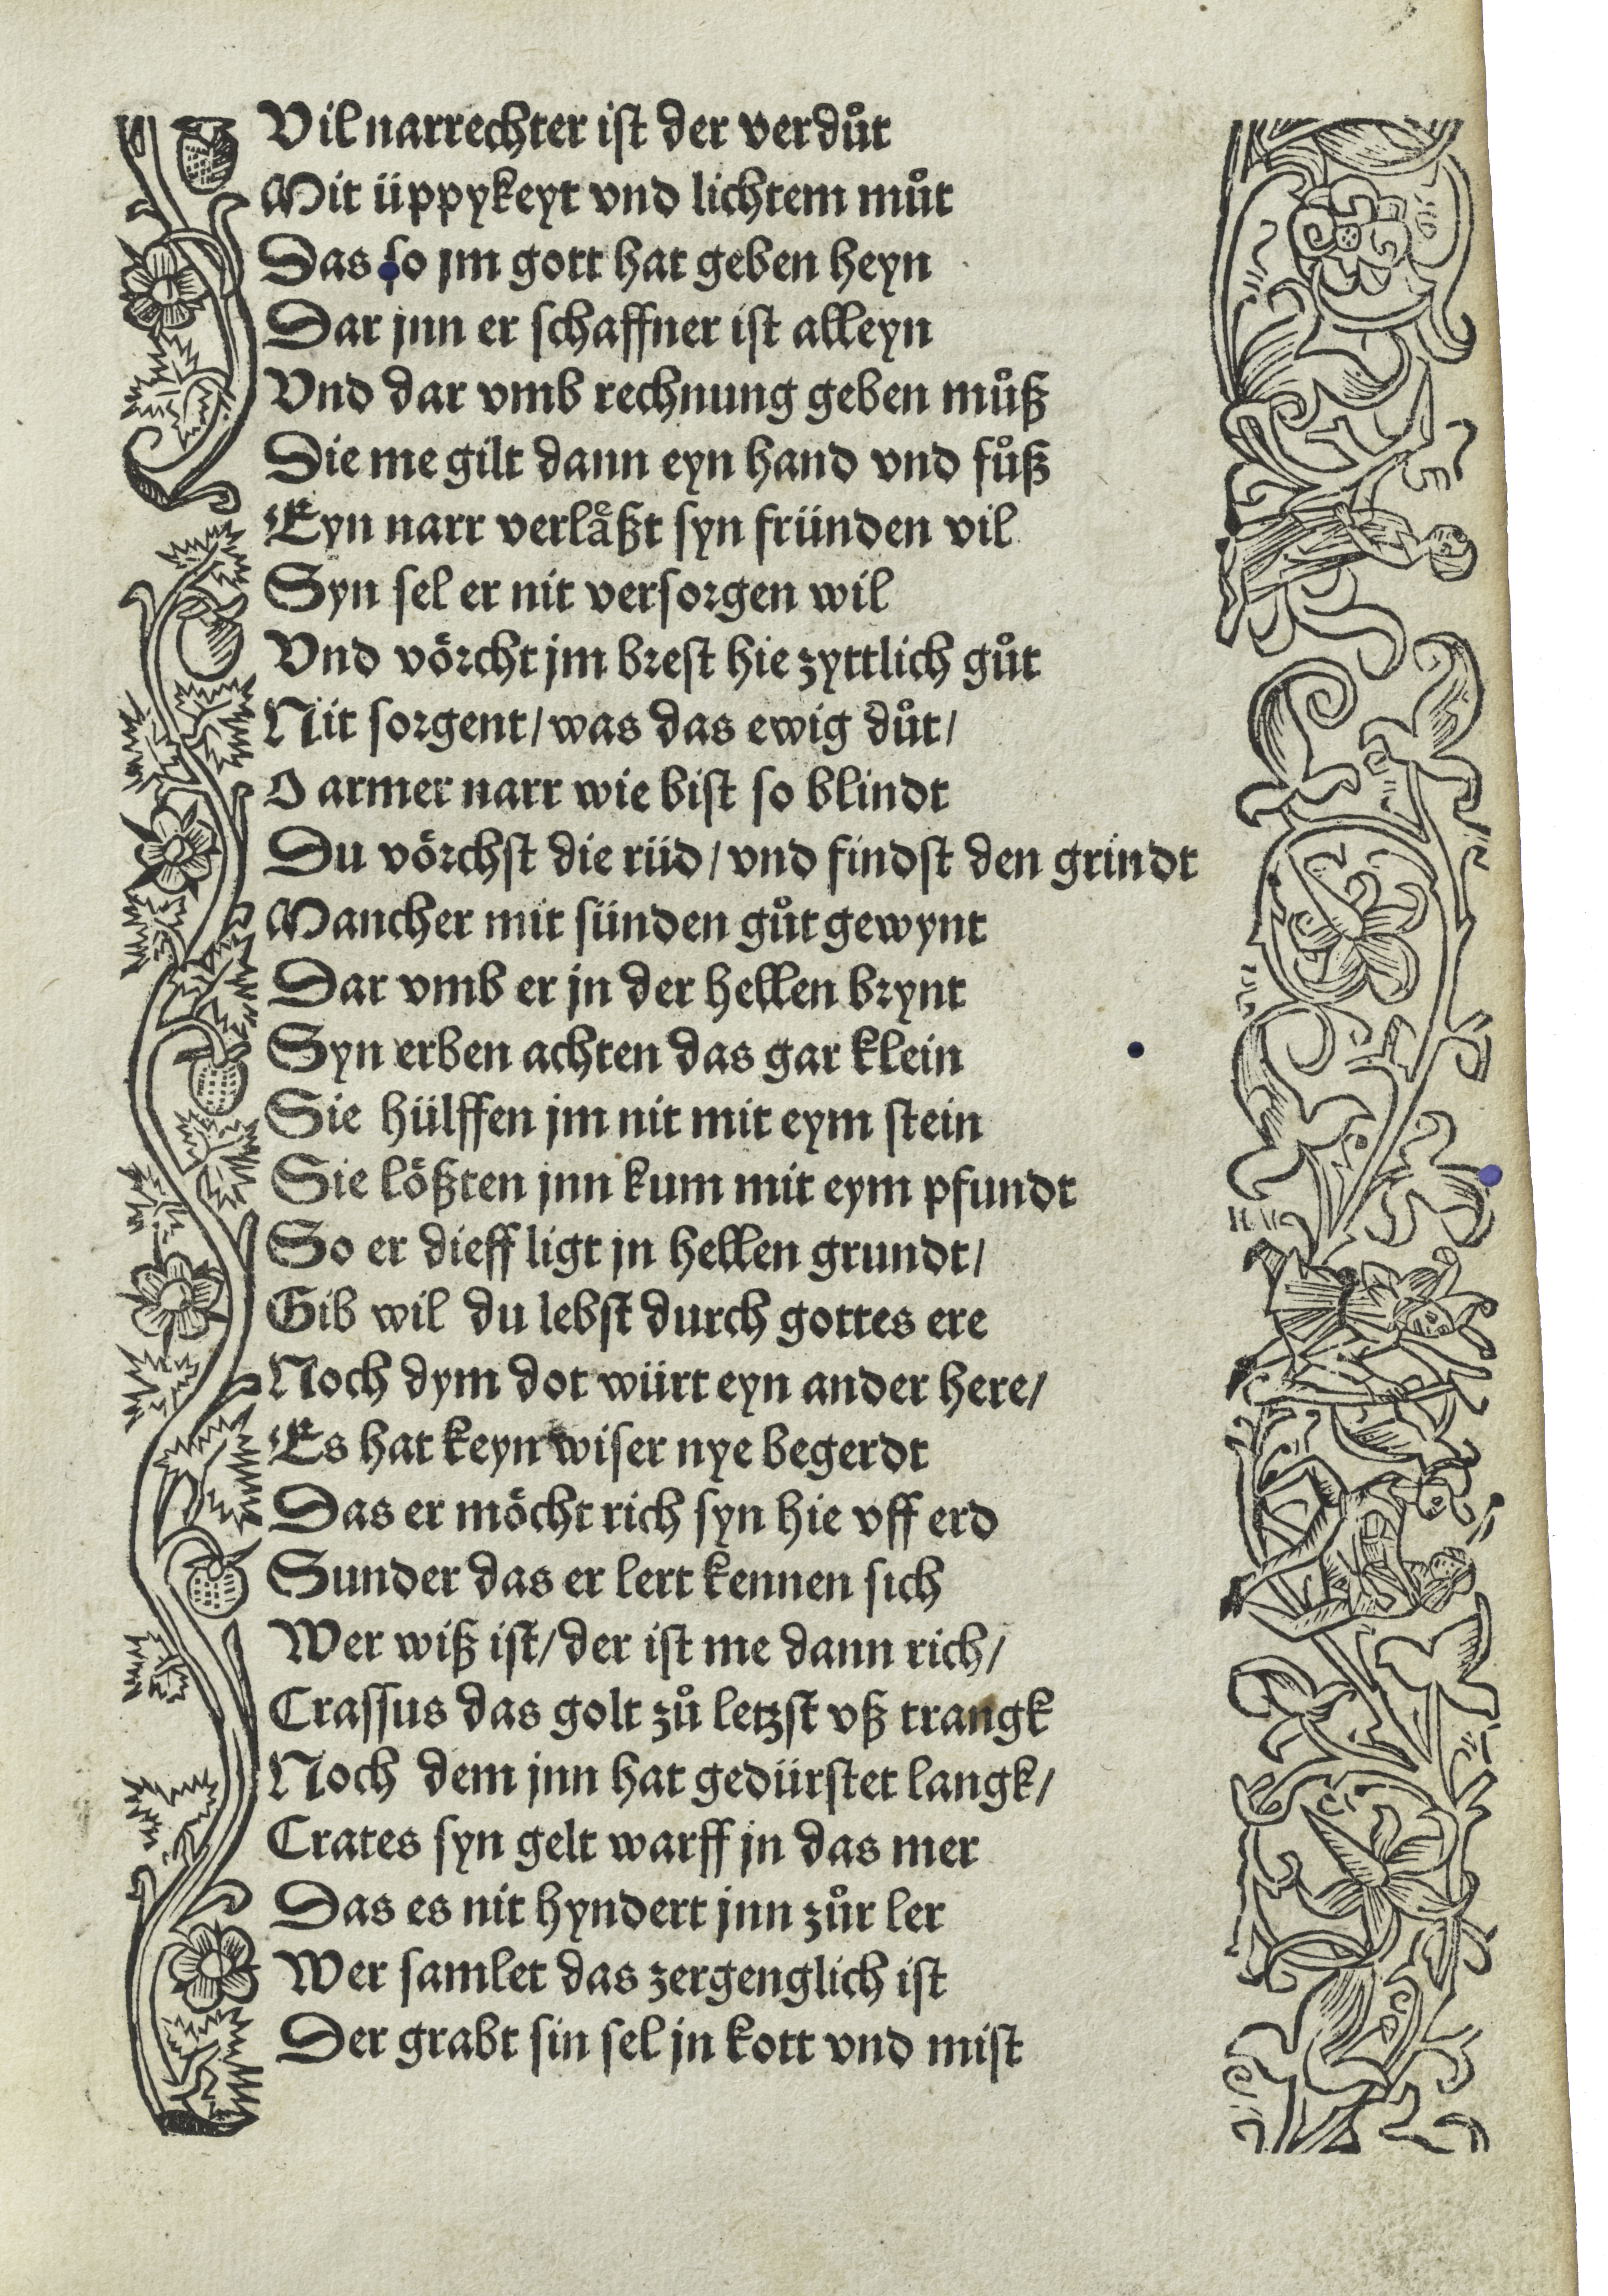 Vil narrechter ist der verduͦt
Mit üppykeyt vnd lichtem muͦt
Das so jm gott hat geben heyn
Dar jnn er schaffner ist alleyn
Vnd dar vmb rechnung geben muͦß
Die me gilt dann eyn hand vnd fuͦß
Eyn narr verlaͤßt syn fründen vil
Syn sel er nit versorgen wil
Vnd voͤrcht jm brest hie zyttlich guͦt
Nit sorgent/was das ewig duͦt/
O armer narr wie bist so blindt
Du voͤrchst die rüd/vnd findst den grindt
Mancher mit sünden guͦt gewynt
Dar vmb er jn der hellen brynt
Syn erben achten das gar klein
Sie hülffen jm nit mit eym stein
Sie loͤßten jnn kum mit eym pfundt
So er dieff ligt jn hellen grundt/
Gib wil du lebst durch gottes ere
Noch dym dot würt eyn ander here/
Es hat keyn wiser nye begerdt
Das er moͤcht rich syn hie vff erd
Sunder das er lert kennen sich
Wer wiß ist/der ist me dann rich/
Crassus das golt zuͦ letzst vß trangk
Noch dem jnn hat gedürstet langk/
Crates syn gelt warff jn das mer
Das es nit hyndert jnn zuͦr ler
Wer samlet das zergenglich ist
Der grabt sin sel jn kott vnd mist